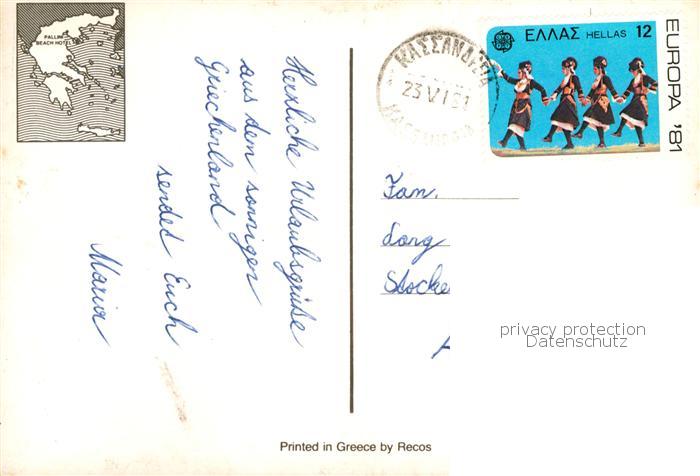 PALLINI
BEACH HOTEL
Herzliche Urlaubsgrüße
aus dem sonnigen
Griechenland
sendet Euch
Maria
ΚΑΣΣΑΝΔΡΕΙΑ
23 VI 81
ΕΛΛΑΣ HELLAS 12
EUROPA '81
Fam.
Lang
Stocke
privacy protection
Datenschutz
Printed in Greece by Recos